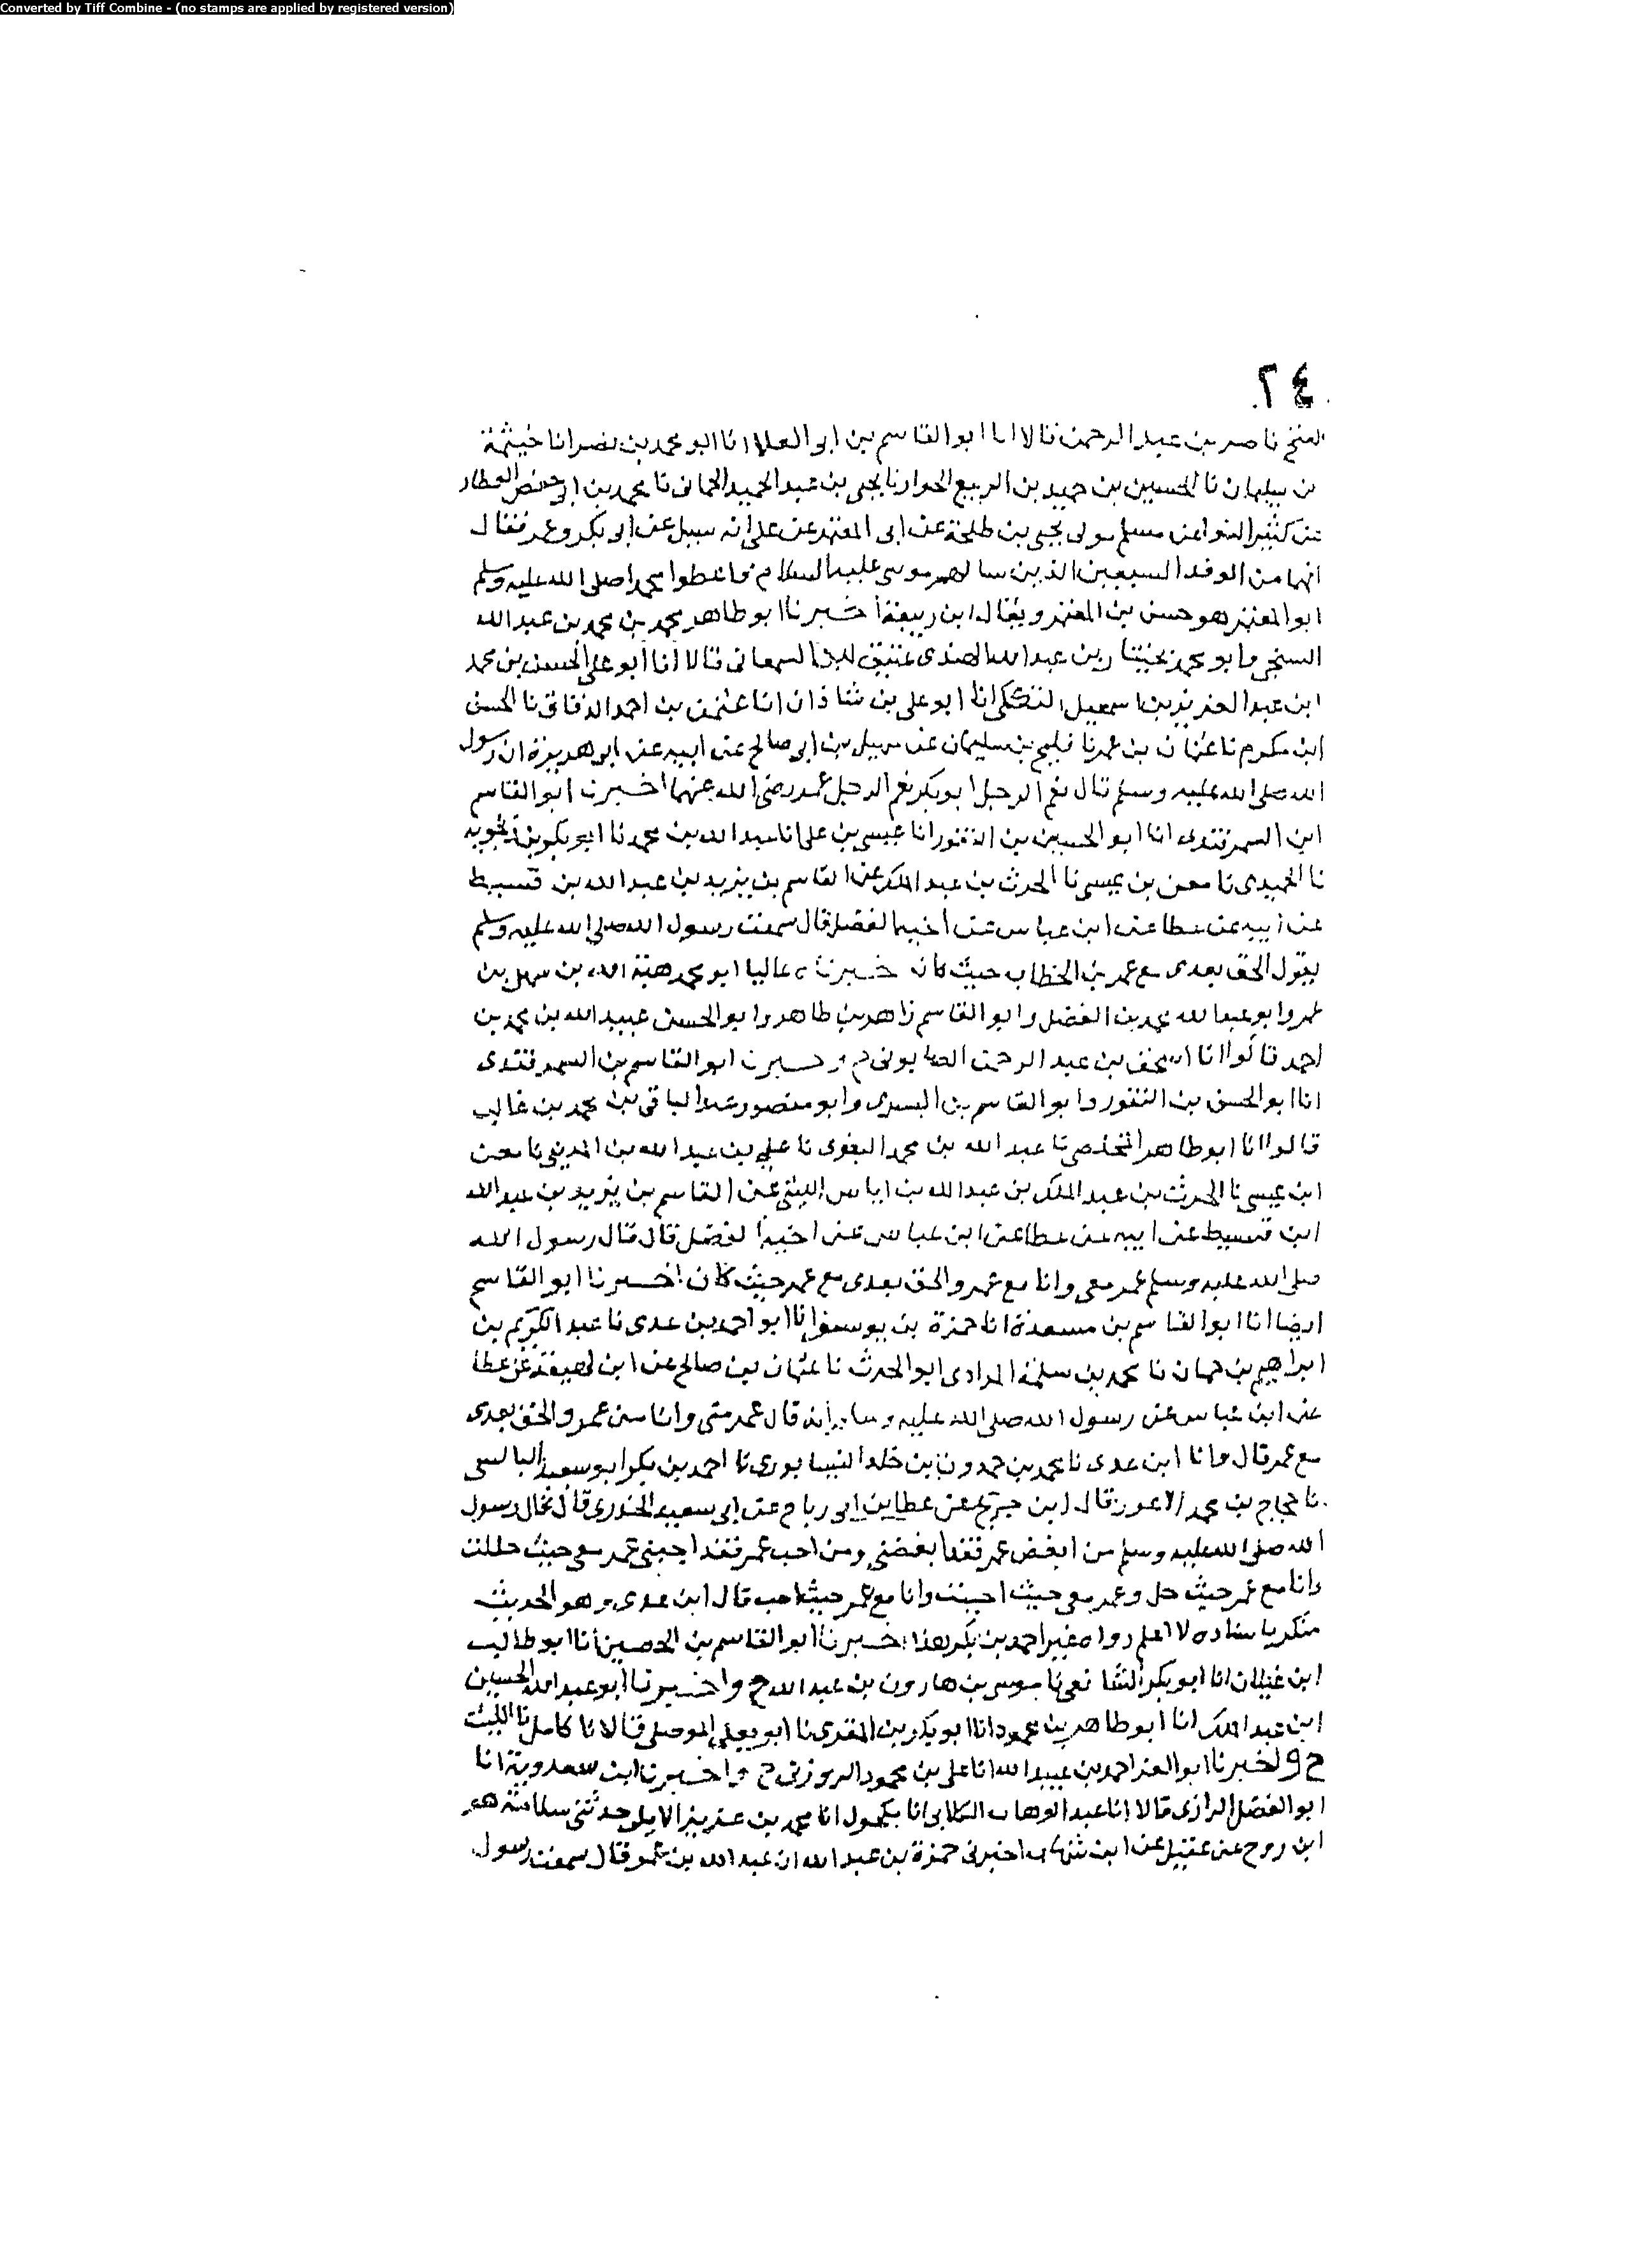 Converted by Tiff Combine - (no stamps are applied by registered version)
٢٤
الفتح ناصر بن عبد الرحمن قالا انا ابو القاسم بن ابى العلا انا ابو محمد بن نصر انا خيثمة
بن سليمان نا الحسين بن حميد بن الربيع نا يحيى بن عبد الحميد الحمانى نا محمد بن ابى حفص العطار
عن كثير النوا عن مسلم مولى يحيى بن طلحة عن ابى المعتمر عن على انه سيل عن ابى بكر وعمر فقال
انهما من الوفد السبعين الذين سالهم موسى عليه السلام فاعطوا محمدا صلى الله عليه وسلم
ابو المعتمر هو حسن بن المعتمر ويقال ابن ربيعة اخبرنا ابو طاهر محمد بن محمد بن عبد الله
السنجى وابو محمد بختيار بن عبد الله الهندى عتيق السمعانى قالا انا ابو على الحسن بن محمد
ابن عبد العزيز بن اسمعيل التككى انا ابو على بن شاذان انا عثمن بن احمد الدقاق نا الحسن
ابن مكرم نا عثمان بن عمر نا فليح بن سليمان عن سهيل بن ابى صالح عن ابيه عن ابى هريرة ان رسول
الله صلى الله عليه وسلم قال نعم الرجل ابو بكر نعم الرجل عمر رضى الله عنهما اخبرنا ابو القاسم
ابن السمرقندى انا ابو الحسين بن النقور انا عيسى بن على انا عبد الله بن محمد نا ابو بكر بن زنجويه
نا الحميدى نا معن بن عيسى نا الحرث بن عبد الملك عن القاسم بن يزيد بن عبد الله بن قسيط
عن ابيه عن عطا عن ابن عباس عن اخيه الفضل قال سمعت رسول الله صلى الله عليه وسلم
يقول الحق بعدى مع عمر بن الخطاب حيث كان خبرناه عاليا ابو محمد هبة الله بن سهل بن
عمر وابو عبد الله محمد بن الفضل وابو القاسم زاهر بن طاهر وابو الحسن عبيد الله بن محمد بن
احمد قالوا انا اسحق بن عبد الرحمن الصابونى ح وخبرنا ابو القاسم بن السمرقندى
انا ابو الحسن بن النقور وابو القاسم بن البسرى وابو منصور عبد الباقى بن محمد بن غالب
قالوا انا ابو طاهر المخلص نا عبد الله بن محمد البغوى نا على بن عبد الله بن المدينى نا معن
ابن عيسى نا الحرث بن عبد الملك بن عبد الله بن اياس الليثى عن القاسم بن يزيد بن عبد الله
ابن قسيط عن ابيه عن عطا عن ابن عباس عن اخيه الفضل قال قال رسول الله
صلى الله عليه وسلم عمر معى وانا مع عمر والحق بعدى مع عمر حيث كان اخبرنا ابو القاسم
ايضا انا ابو القاسم بن مسعدة انا حمزة بن يوسف انا ابو احمد بن عدى نا عبد الكريم بن
ابراهيم بن حمان نا محمد بن سلمة المرادى ابو الحرث نا عثمان بن صالح عن ابن لهيعة عن عطا
عن ابن عباس عن رسول الله صلى الله عليه وسلم انه قال عمر منى وانا من عمر والحق بعدى
مع عمر قال وانا ابن عدى نا محمد بن حمدون بن خلد النيسابورى نا احمد بن بكر ابو سعيد البالسى
نا حجاج بن محمد الاعور قال ابن جريج عن عطا بن ابى رباح عن ابى سعيد الخدرى قال قال رسول
الله صلى الله عليه وسلم من ابغض عمر فقد ابغضنى ومن احب عمر فقد احبنى عمر معى حيث حللت
وانا مع عمر حيث حل وعمر معى حيث احببت وانا مع عمر حيث احب قال ابن عدى وهو الحديث
منكر باسناده لا اعلم رواه غير احمد بن بكر هذا اخبرنا ابو القاسم بن الحصين انا ابو طالب
ابن غيلان انا ابو بكر الشافعى نا موسى بن هارون بن عبد الله ح واخبرنا ابو عبد الله الحسين
ابن عبد الملك انا ابو طاهر بن محمود انا ابو بكر بن المقرى نا ابو يعلى الموصلى قالا نا كامل نا الليث
ح واخبرنا ابو العز احمد بن عبيد الله انا على بن محمود الزوزنى ح واخبرنا ابن سعدوية انا
ابو الفضل الرازى قالا انا عبد الوهاب الكلابى انا مكحول انا محمد بن عزيز الايلى حدثنى سلامة هو
ابن روح عن عقيل عن ابن شهاب اخبرنى حمزة بن عبد الله ان عبد الله بن عمر قال سمعت رسول